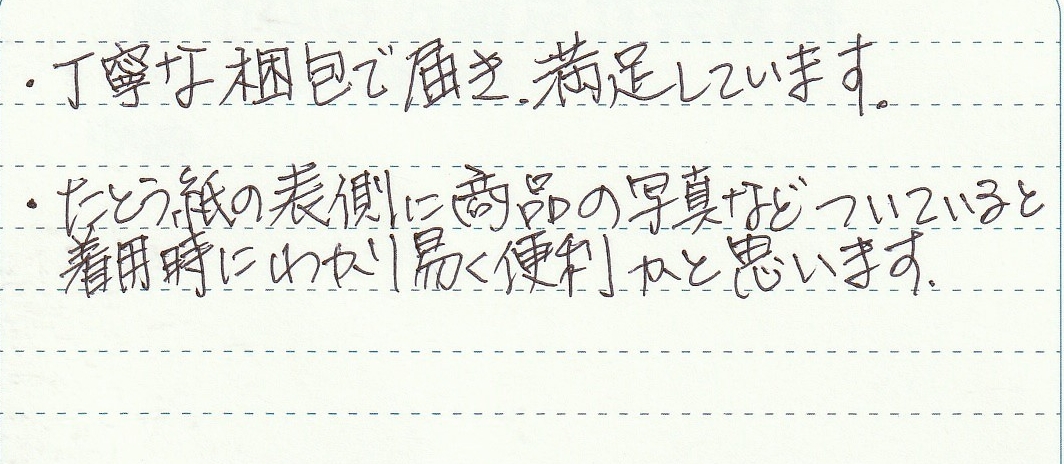 ・丁寧な梱包で届き、満足しています。
・たとう紙の表側に商品の写真などついていると
着用時にわかり易く便利かと思います。